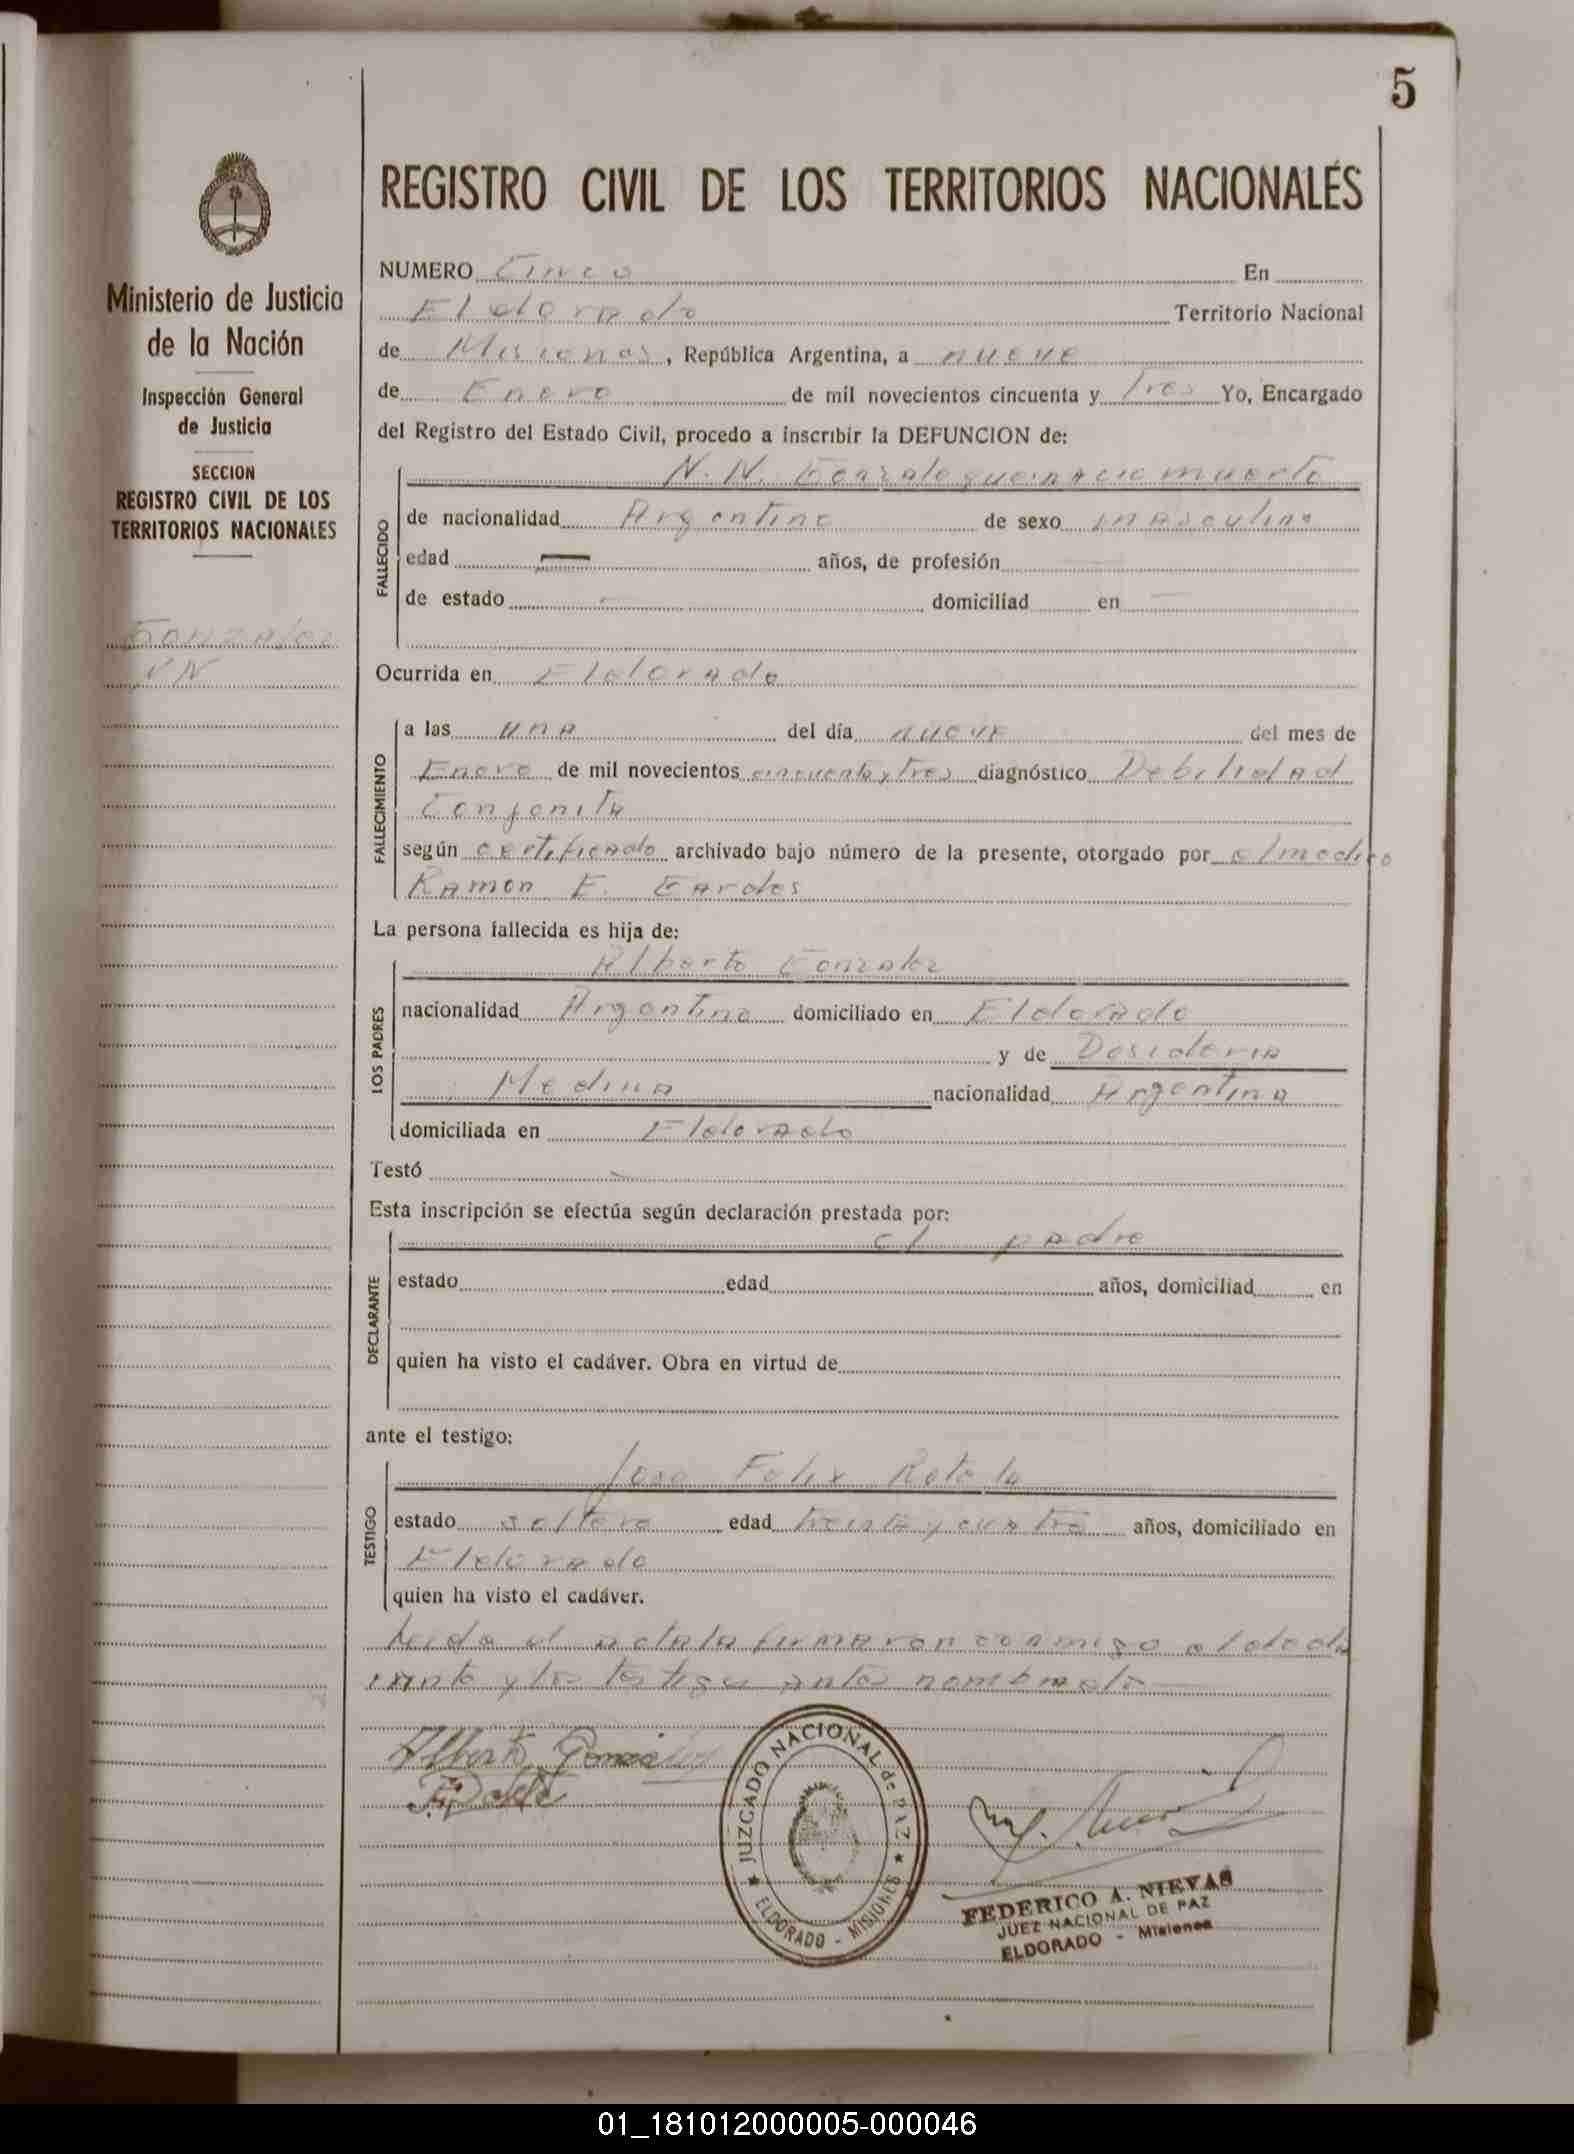 5
REGISTRO CIVIL DE LOS TERRITORIOS NACIONALES
Ministerio de Justicia
de la Nación
Inspección General
de Justicia
SECCION
REGISTRO CIVIL DE LOS
TERRITORIOS NACIONALES
Gonzalez
NN
NUMERO Cinco En
Eldorado Territorio Nacional
de Misiones, República Argentina, a nueve
de Enero de mil novecientos cincuenta y tres Yo, Encargado
del Registro del Estado Civil, procedo a inscribir la DEFUNCION de:
FALLECIDO
N. N. Gonzalez que nacio muerto
de nacionalidad Argentino de sexo masculino
edad — años, de profesión
de estado — domiciliad en —
Ocurrida en Eldorado
FALLECIMIENTO
a las una del día nueve del mes de
Enero de mil novecientos cincuenta y tres diagnóstico Debilidad
Conjenita
según certificado archivado bajo número de la presente, otorgado por el medico
Ramon E.
La persona fallecida es hija de:
LOS PADRES
Alberto Gonzalez
nacionalidad Argentino domiciliado en Eldorado
y de Desideria
Medina nacionalidad Argentina
domiciliada en Eldorado
Testó —
Esta inscripción se efectúa según declaración prestada por:
DECLARANTE
el padre
estado edad años, domiciliad en
quien ha visto el cadáver. Obra en virtud de
ante el testigo:
TESTIGO
Jose Felix
estado soltero edad treinta y cuatro años, domiciliado en
Eldorado
quien ha visto el cadáver.
Leida el acta la firmaron conmigo el
y los testigos antes nombrado —
Alberto Gonzalez
JUZGADO NACIONAL de PAZ
ELDORADO - MISIONES
FEDERICO A. NIEVAS
JUEZ NACIONAL DE PAZ
ELDORADO - Misiones
01_181012000005-000046